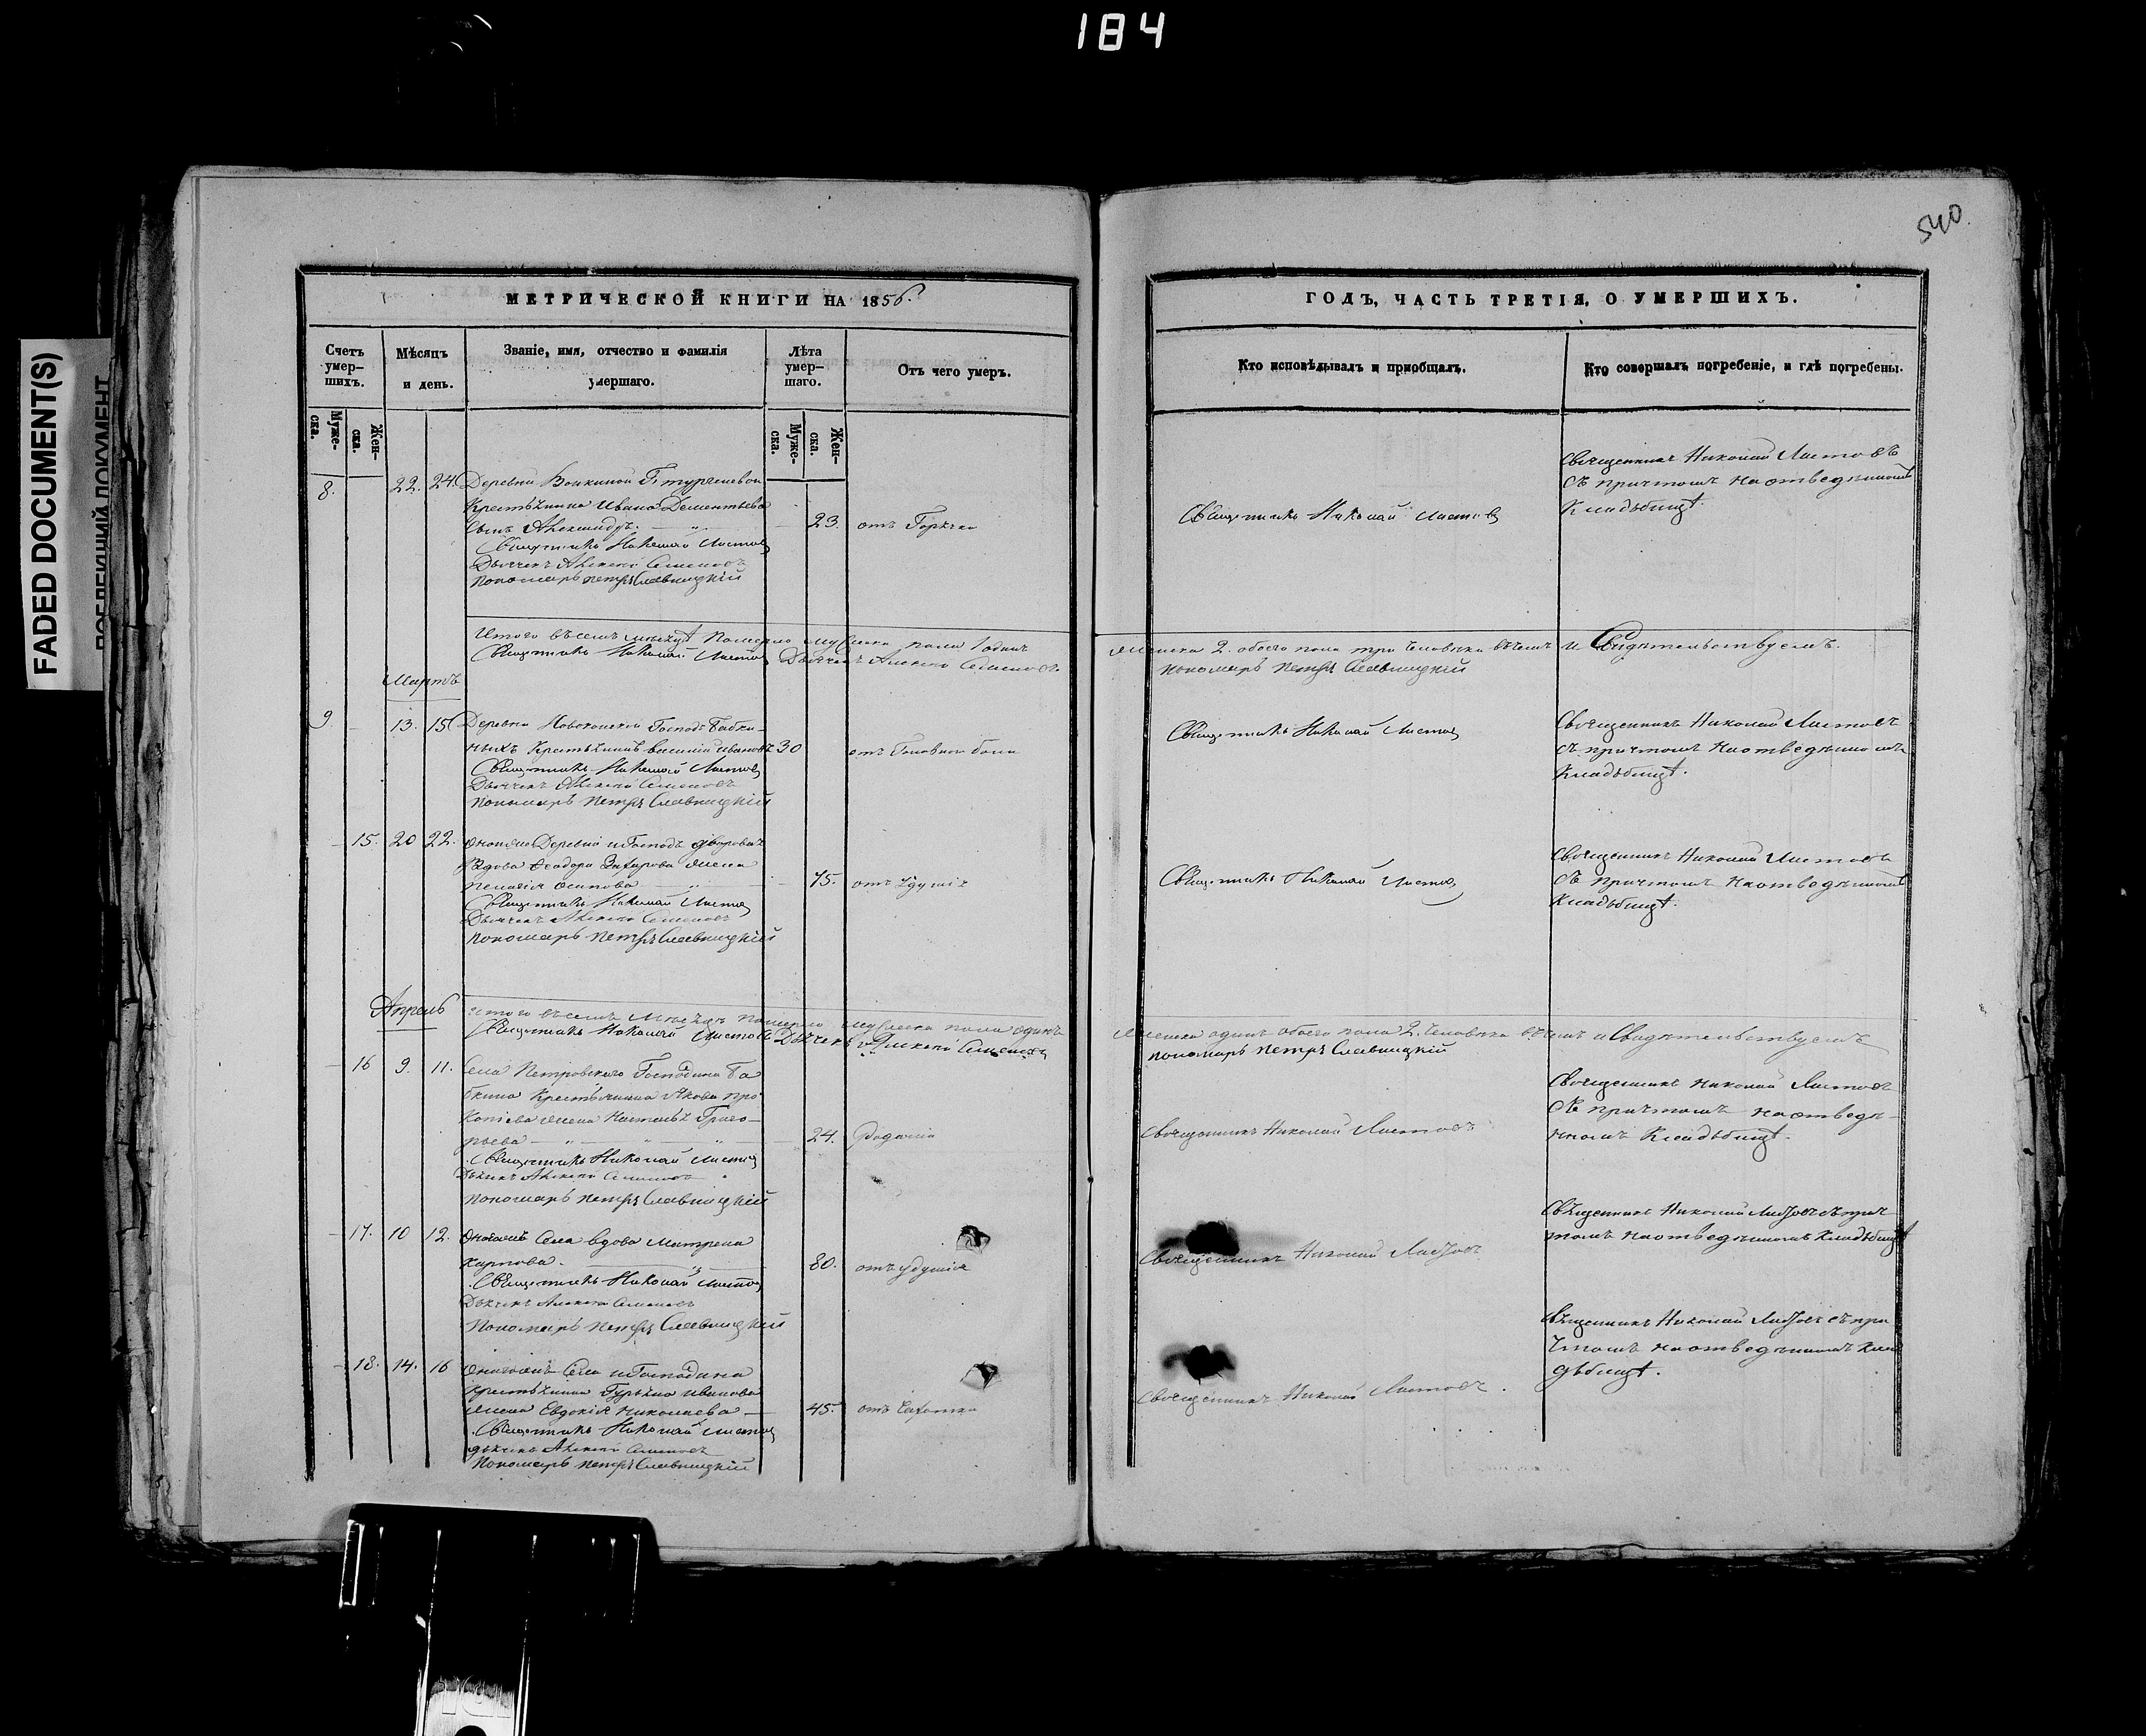 184
540
FADED DOCUMENT(S)
МЕТРИЧЕСКОЙ КНИГИ НА 1856.
ГОДЪ, ЧАСТЬ ТРЕТІЯ, О УМЕРШИХЪ.
Счетъ умер-шихъ.
Мѣсяцъ и день.
Званіе, имя, отчество и фамилія умершаго.
Лѣта умер-шаго.
Отъ чего умеръ.
Кто исповѣдывалъ и пріобщалъ.
Кто совершалъ погребеніе, и гдѣ погребены.
Муже-ска.
Жен-ска.
Муже-ска.
Жен-ска.
8. 22. 24. Деревни
Крестьянина Ивана Дементьева
сынъ Александръ. 23. отъ Горячки
Священникъ Николай Листовъ
Дьячекъ Алексѣй Семеновъ
Пономарь Петръ Славницкій
Священникъ Николай Листовъ
Священникъ Николай Листовъ
съ причтомъ на отведенномъ
Кладбищѣ.
Итого въ семъ мѣсяцѣ померло мужеска пола 1 одинъ
женска 2. обоего пола три человѣка въ чемъ и Свидѣтельствуемъ.
Священникъ Николай Листовъ Дьячекъ Алексѣй Семеновъ.
Пономарь Петръ Славницкій
Мартъ
9 13. 15 Деревни Господъ Бабки-
ныхъ Крестьянинъ Василій Ивановъ 30 отъ Головной боли
Священникъ Николай Листовъ
Дьячекъ Алексѣй Семеновъ
Пономарь Петръ Славницкій
Священникъ Николай Листовъ
Священникъ Николай Листовъ
съ причтомъ на отведенномъ
Кладбищѣ.
15. 20 22. Оной же Деревни и Господъ
Вдова Ѳеодора жена
Пелагія Осипова 75. отъ удушія
Священникъ Николай Листовъ
Дьячекъ Алексѣй Семеновъ
Пономарь Петръ Славницкій
Священникъ Николай Листовъ
Священникъ Николай Листовъ
съ причтомъ на отведенномъ
Кладбищѣ.
Итого въ семъ Мѣсяцѣ померло мужеска пола одинъ
женска одинъ обоего пола 2. человѣка въ чемъ и Свидѣтельствуемъ
Священникъ Николай Листовъ Дьячекъ Алексѣй Семеновъ
Пономарь Петръ Славницкій
Апрель
16 9. 11. Села Петровскаго Господина Ба
бкина Крестьянина Якова Про
копіева жена Наталья Григо-
рьева 24. Родами
Священникъ Николай Листовъ
Дьячекъ Алексѣй Семеновъ
Пономарь Петръ Славницкій
Священникъ Николай Листовъ
Священникъ Николай Листовъ
съ причтомъ на отведе-
нномъ Кладбищѣ.
17. 10 12. Онагожъ Села вдова Матрена
Карпова. 80. отъ удушія
Священникъ Николай Листовъ
Дьячекъ Алексѣй Семеновъ
Пономарь Петръ Славницкій
Священникъ Николай Листовъ
Священникъ Николай Листовъ съ прич
томъ на отведенномъ Кладбищѣ
18. 14. 16 Онагожъ Села и Господина
Крестьянина Ивановa
жена Евдокія Николаева 45. отъ Чахотки
Священникъ Николай Листовъ
Дьячекъ Алексѣй Семеновъ
Пономарь Петръ Славницкій
Священникъ Николай Листовъ.
Священникъ Николай Листовъ съ при
чтомъ на отведенномъ Кла
дбищѣ.